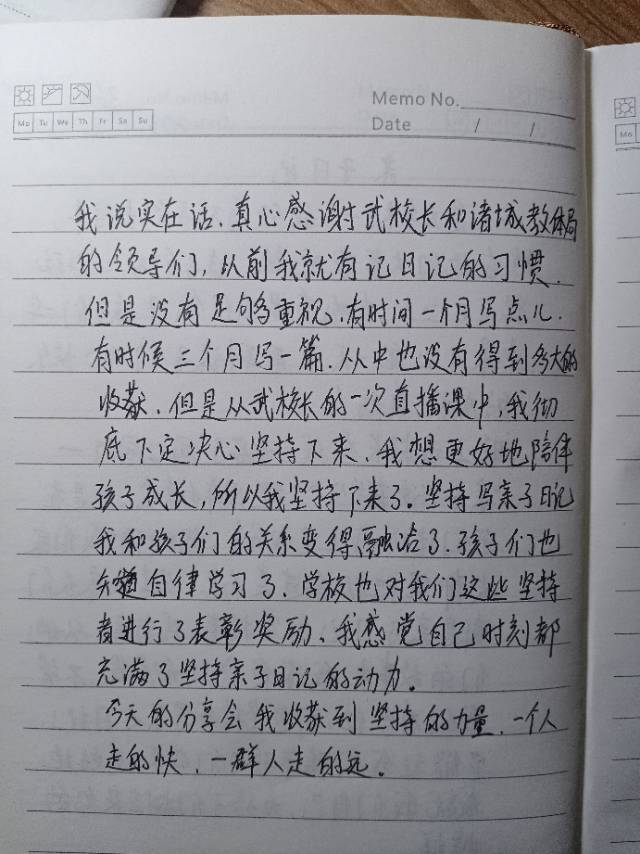 Memo No.
Date / /
Mo Tu We Th Fr Sa Su
我说实在话、真心感谢武校长和诸城教体局
的领导们，以前我就有记日记的习惯、
但是没有足够重视、有时间一个月写点儿、
有时候三个月写一篇、从中也没有得到多大的
收获、但是从武校长的一次直播课中，我彻
底下定决心坚持下来、我想更好地陪伴
孩子成长，所以我坚持下来了。坚持写亲子日记
我和孩子们的关系变得融洽了、孩子们也
知道自律学习了、学校也对我们这些坚持
者进行了表彰奖励、我感觉自己时刻都
充满了坚持亲子日记的动力。
今天的分享会我收获到坚持的力量、一个人
走的快、一群人走的远。
Mo